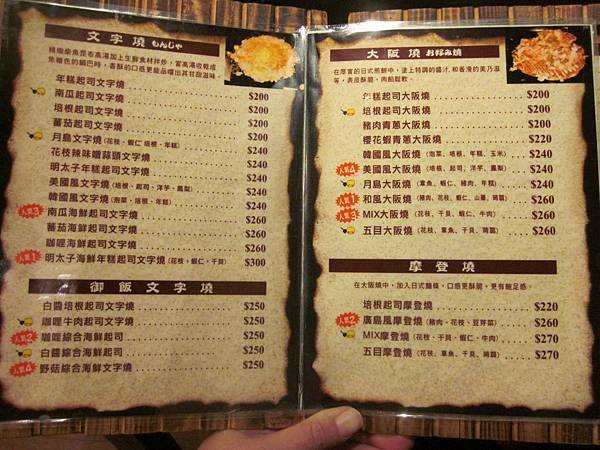 文字燒 もんじゃ
年糕起司文字燒 $200
南瓜起司文字燒 $200
培根起司文字燒 $200
蕃茄起司文字燒 $200
月島文字燒(花枝、蝦仁、培根、年糕) $240
花枝辣味噌蒜頭文字燒 $240
明太子年糕起司文字燒 $240
美國風文字燒(培根、起司、洋芋、鳳梨) $240
韓國風文字燒(泡菜、培根、年糕) $240
人氣3 南瓜海鮮起司文字燒 $260
蕃茄海鮮起司文字燒 $260
咖哩海鮮起司文字燒 $260
人氣1 明太子海鮮年糕起司文字燒(花枝、蝦仁、干貝) $300
御飯文字燒
白醬培根起司文字燒 $250
咖哩牛肉起司文字燒 $250
人氣2 咖哩綜合海鮮起司 $250
白醬綜合海鮮起司 $250
人氣4 野菇綜合海鮮文字燒 $250
大阪燒 お好み燒
在厚實的日式煎餅中,塗上特調的醬汁,和香滑的美乃滋
等,表皮酥脆,肉餡鬆軟。
年糕起司大阪燒 $200
培根起司大阪燒 $200
豬肉青蔥大阪燒 $200
櫻花蝦青蔥大阪燒 $220
韓國風大阪燒(泡菜、培根、年糕、玉米) $240
人氣4 美國風大阪燒(培根、起司、洋芋、鳳梨) $240
月島大阪燒(章魚、蝦仁、豬肉、年糕) $240
人氣1 和風大阪燒(豬肉、花枝、蝦仁、山藥、蒟蒻) $260
人氣3 MIX大阪燒(花枝、干貝、蝦仁、牛肉) $260
五目大阪燒(花枝、章魚、干貝、蒟蒻) $260
摩登燒
在大阪燒中,加入日式麵條,口感更酥脆,更有飽足感。
培根起司摩登燒 $220
人氣2 廣島風摩登燒(豬肉、花枝、豆芽菜) $260
MIX摩登燒(花枝、干貝、蝦仁、牛肉) $270
五目摩登燒(花枝、章魚、干貝、蒟蒻) $270